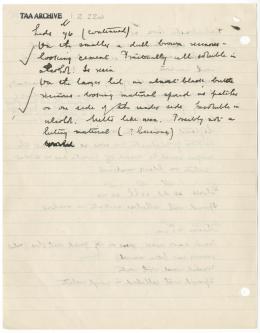 TAA ARCHIVE
i 2 22a
Lids 46 (continued)
On the smaller a dull brown resinous-
looking cement. Practically all soluble in
alcohol. So resin
On the larger lid an almost black brittle
resinous-looking material spread in patches
on one side of the under side. Insoluble in
alcohol. Melts like wax. Possibly not a
luting material (? beeswax)